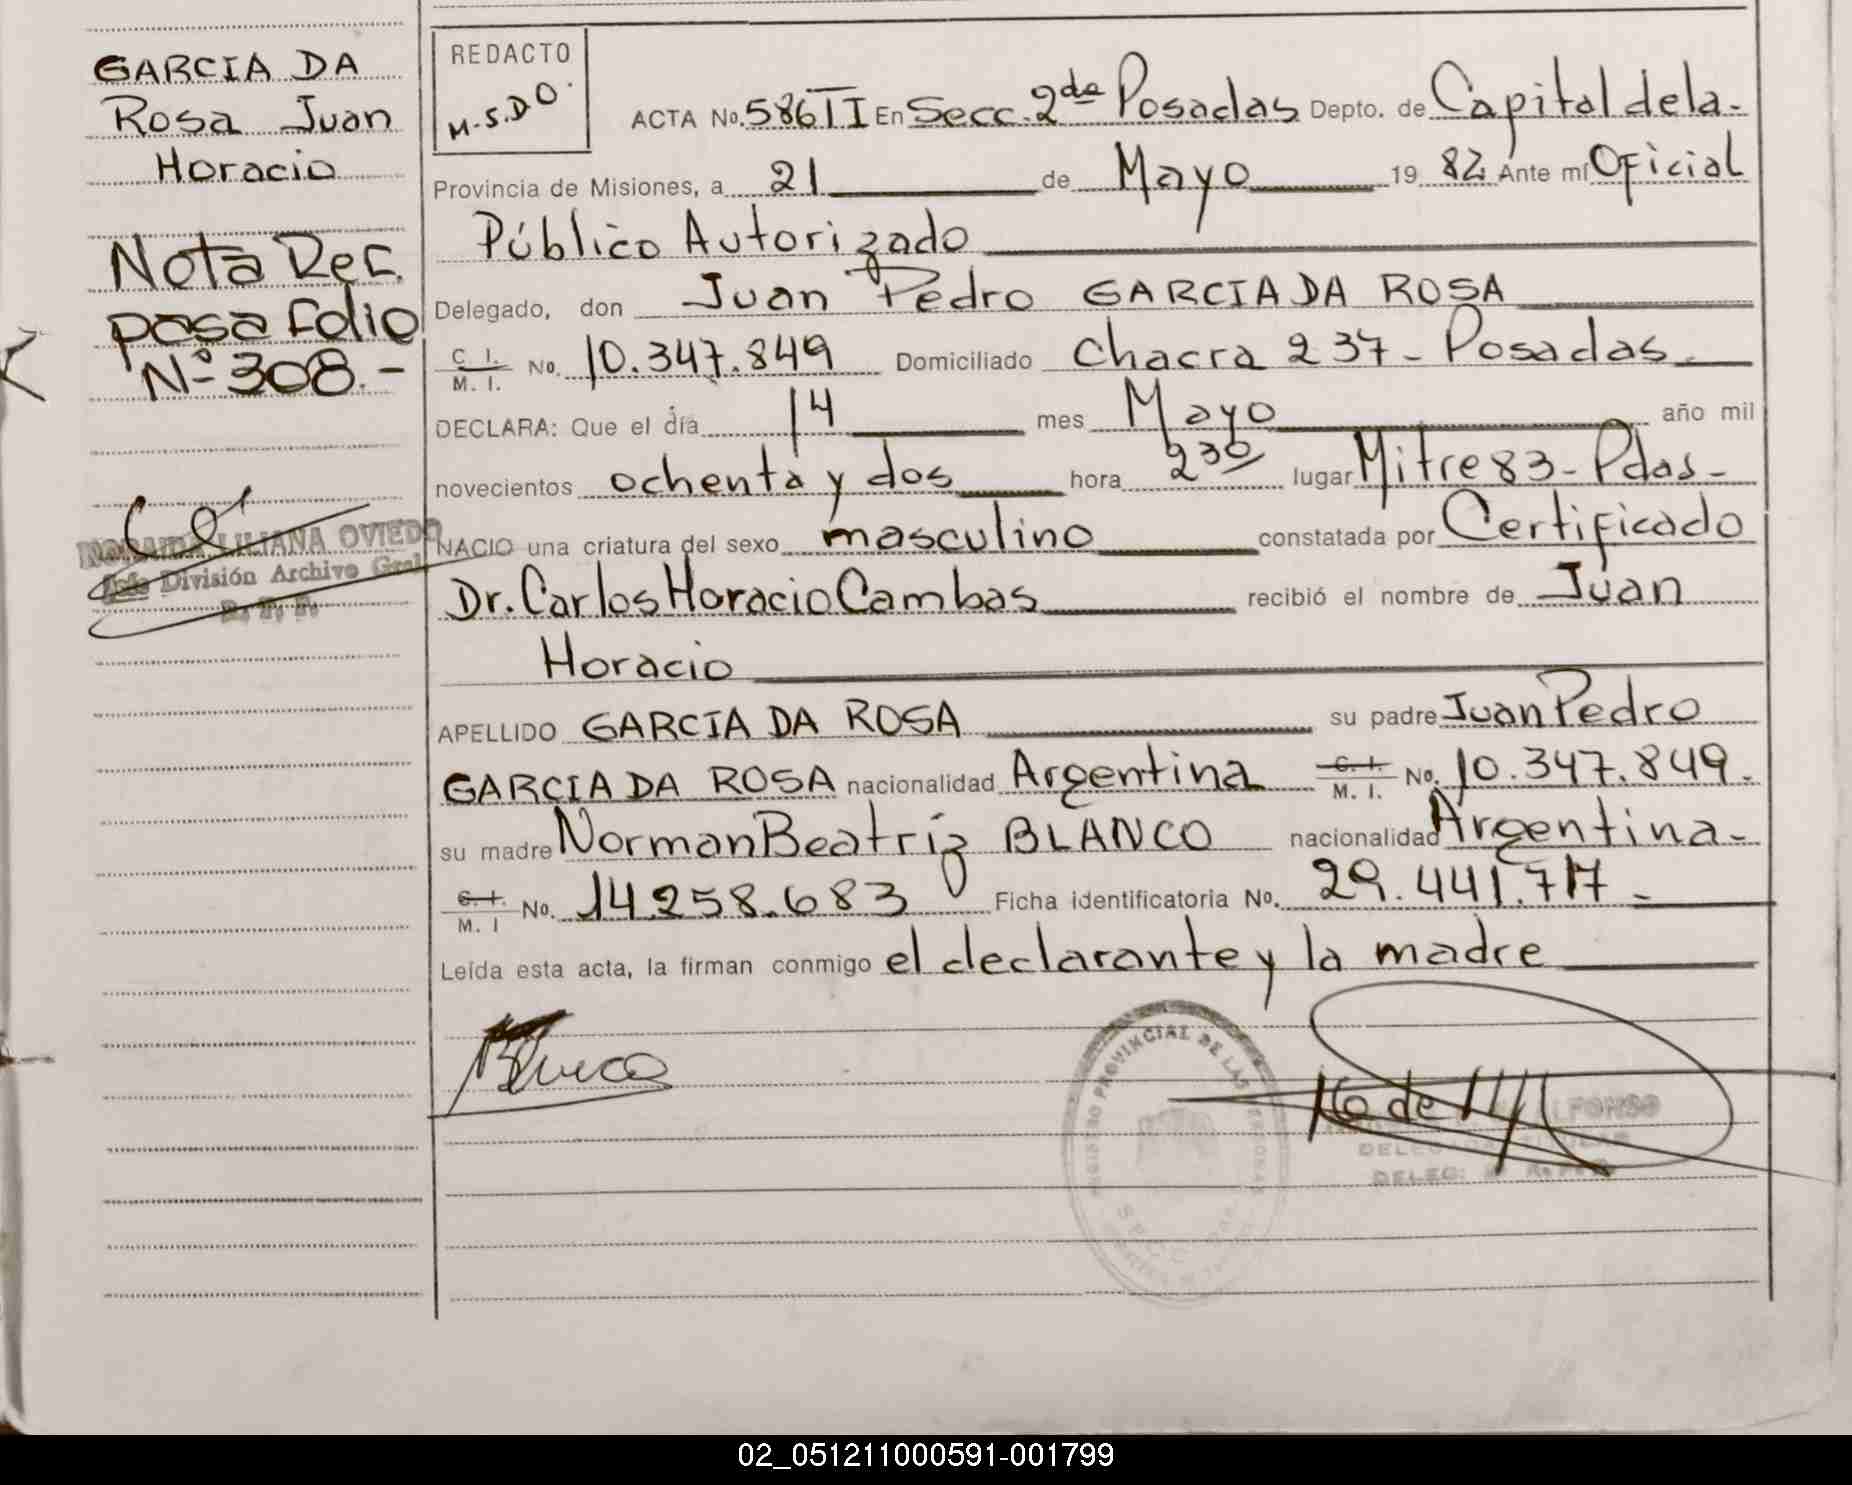 GARCIA DA
Rosa Juan
Horacio
Nota Ref.
pasa folio
Nº 308.-
NORAIDA LILIANA OVIEDO
Jefe División Archivo Gral
R. P. P.
REDACTO
M.S.DO.
ACTA No. 586 II En Secc. 2da Posadas Depto. de Capital de la-
Provincia de Misiones, a 21 de Mayo 19 82 Ante mí Oficial
Público Autorizado
Delegado, don Juan Pedro GARCIA DA ROSA
C. I. M. I. No. 10.347.849 Domiciliado Chacra 237- Posadas
DECLARA: Que el día 14 mes Mayo año mil
novecientos ochenta y dos hora 230 lugar Mitre 83- Pdas-
NACIO una criatura del sexo masculino constatada por Certificado
Dr. Carlos Horacio Cambas recibió el nombre de Juan
Horacio
APELLIDO GARCIA DA ROSA su padre Juan Pedro
GARCIA DA ROSA nacionalidad Argentina C. I. M. I. No. 10.347.849.
su madre Norman Beatriz BLANCO nacionalidad Argentina-
C. I. M. I No. 14.258.683 Ficha identificatoria No. 29.441.717
Leída esta acta, la firman conmigo el declarante y la madre
REGISTRO PROVINCIAL DE LAS PERSONAS
ALFONSO
DELEG.
02_051211000591-001799